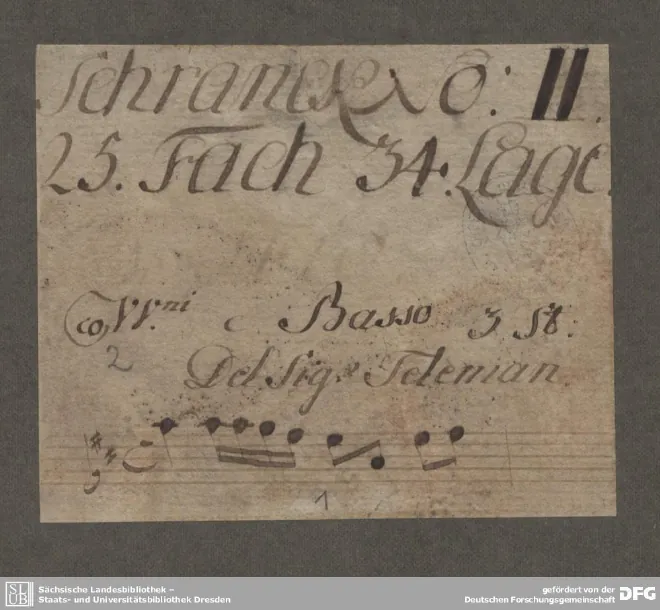 Schranck No: II.
25. Fach 34. Lage.
co VV.ni e Basso 3 St:
2
Del Sig.r Teleman.
1
SLUB
Sächsische Landesbibliothek –
Staats- und Universitätsbibliothek Dresden
gefördert von der
Deutschen Forschungsgemeinschaft
DFG